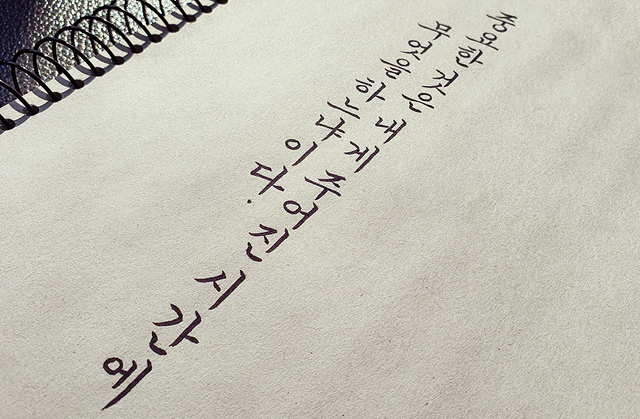 중요한 것은 내게 주어진 시간에
무엇을 하느냐이다.